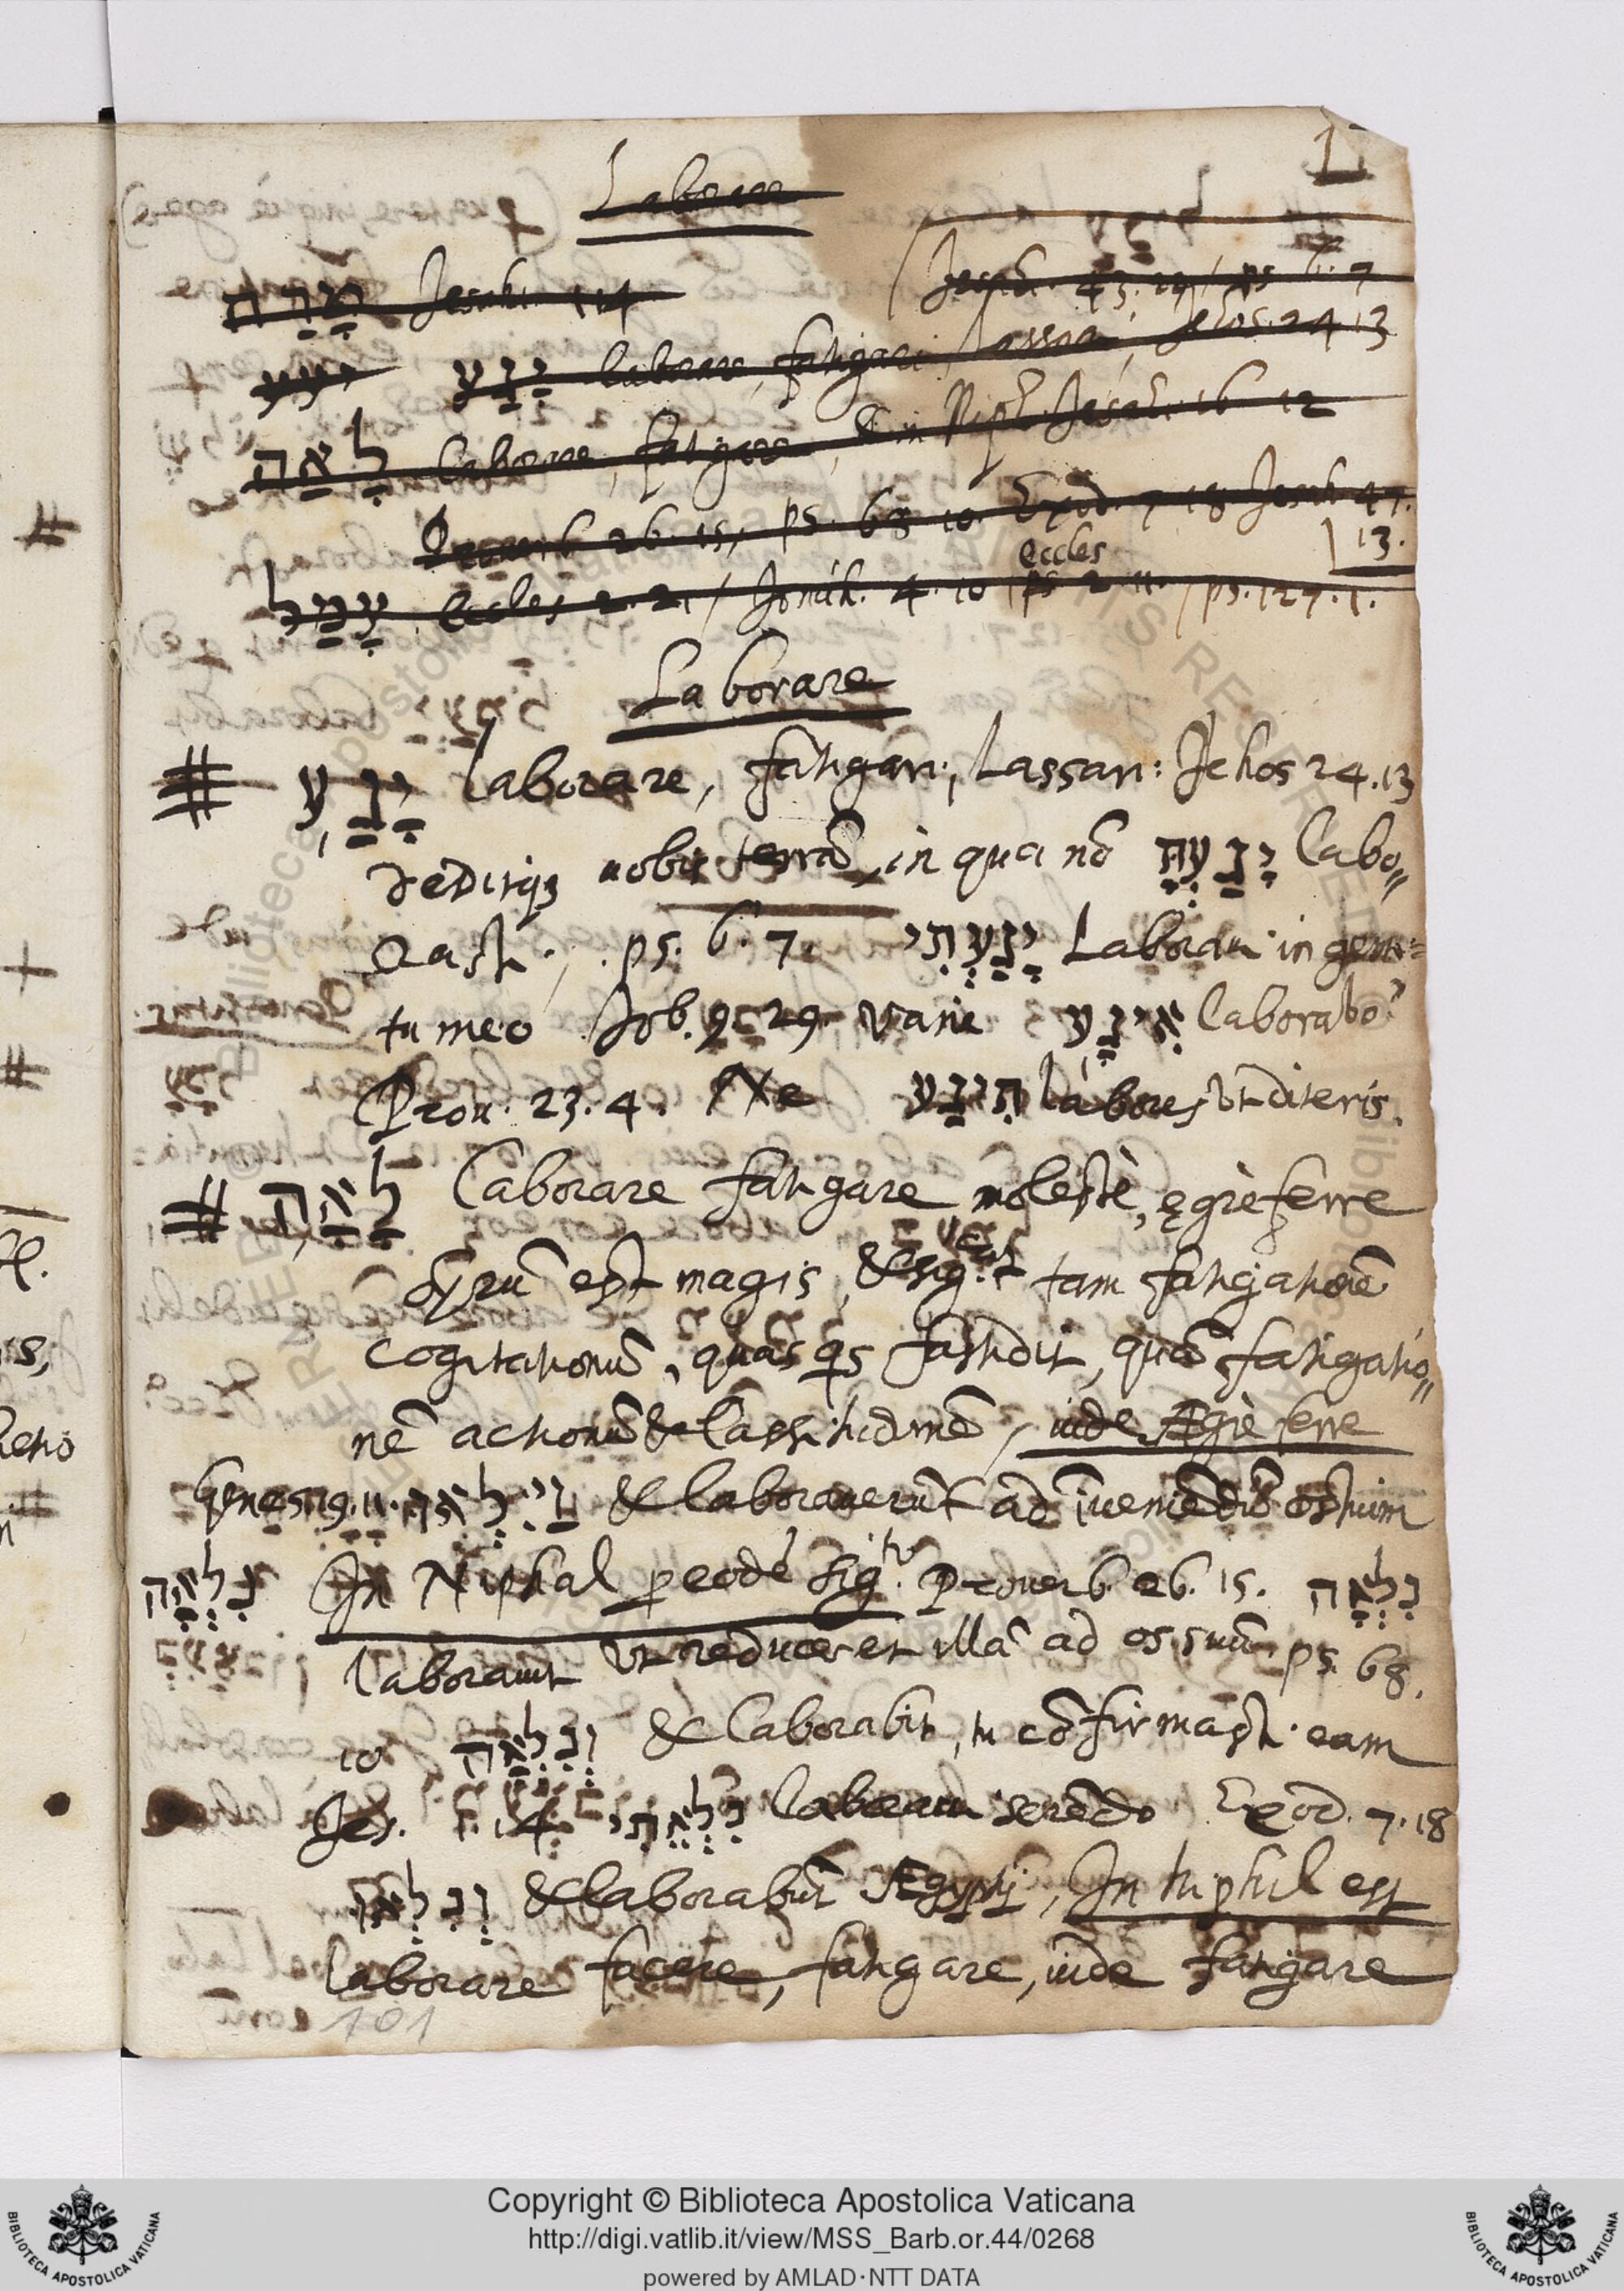 Laborare
טָרַח Jesah. 1 14 (Jesah. 43. 24 / ps 6. 7
יגע יָגַע laborare, fatigari, Lassari, Jehos. 24 13
לָאָה laborare, fatigare, & in Niph. Jesah. 16 12
Proverb 26. 15, ps. 68 10. Exod. 7 18 Jesah. 47.
13.
eccles
עָמַל Eccles 2. 21 / Jonah. 4. 10 ps 2. 11. / ps. 127. 1.
Laborare
# יָגַע laborare, fatigari, Lassari: Jehos 24. 13
dediq3 nobis terrã, in qua nõ יָגַעְתָּ labo„
rasti. , ps. 6. 7. יָגַעְתִּי Laboraui in gemi=
tu meo Job. 9. 29. vane אִיגָע laborabo?
Prou. 23. 4. Ne תִּיגַע labores vt diteris.
# לָאָה laborare fatigare molestè, ęgrè ferre
Syrũ est magis, & sig.t tam fatigationẽ
cogitationũ, quas qs fastidit, quã fatigatio„
nẽ actionũ & lassitudinẽ / inde Ægrè ferre
Genes 19. 11. וַיִּלְאוּ & laborauerũt ad iueniẽdũ ostium
נִלְאָה In Niphal p eodẽ sig.tu Prouerb. 26. 15. נִלְאָה
laborauit vt reduceret illã ad os suũ ps. 68.
10 וְנִלְאָה & laborabit, tu cõfirmasti eam
Jes. 1. 14 נִלְאֵתִי laboraui ferẽdo Exod. 7. 18
וְנִלְאוּ & laborabũt Ægyptij, In hiphil est
laborare facere, fatigare, inde fatigare
101
Copyright © Biblioteca Apostolica Vaticana
http://digi.vatlib.it/view/MSS_Barb.or.44/0268
powered by AMLAD·NTT DATA
BIBLIOTECA APOSTOLICA VATICANA
BIBLIOTECA APOSTOLICA VATICANA